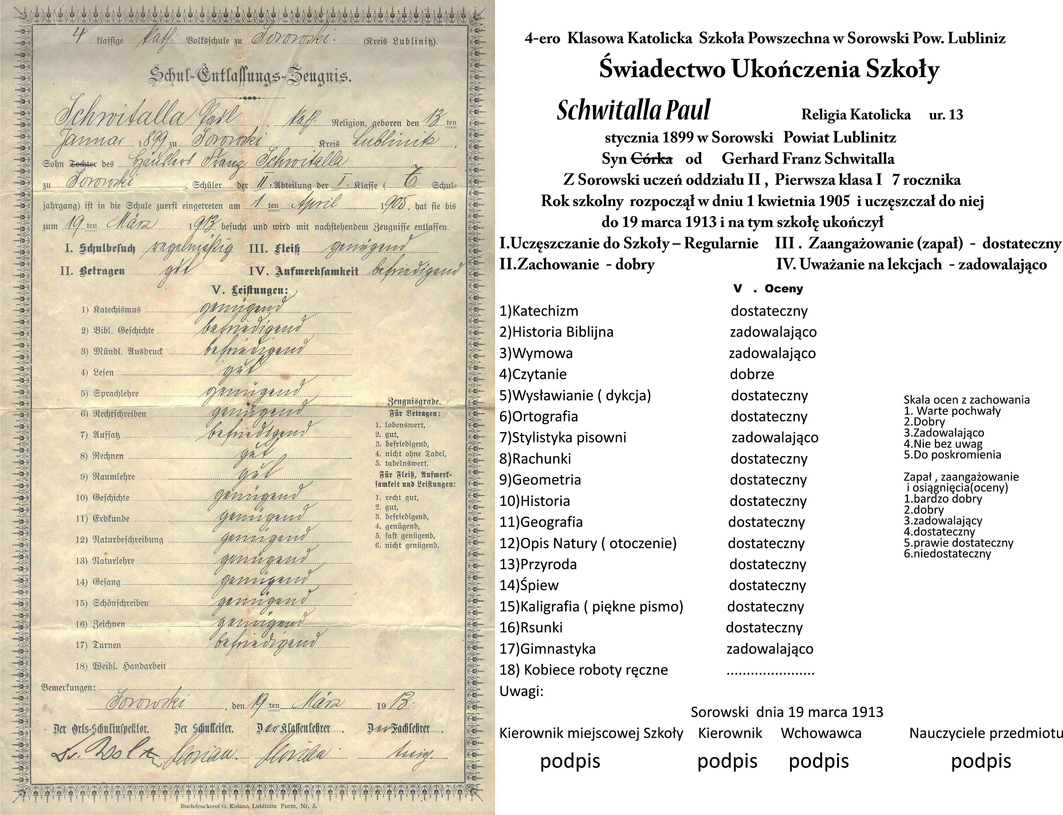 4 klassige kath. Volksschule zu Sorowski. (Kreis Lublinitz).
Schul-Entlassungs-Zeugnis.
Schwitalla Paul, kath. Religion, geboren den 13 ten
Januar 1899 zu Sorowski Kreis Lublinitz
Sohn Tochter des Häuslers Franz Schwitalla
zu Sorowski, Schüler der II. Abteilung der I. Klasse ( 7. Schul-
jahrgang) ist in die Schule zuerst eingetreten am 1 ten April 1905, hat sie bis
zum 19 ten März 1913 besucht und wird mit nachstehendem Zeugnisse entlassen.
I. Schulbesuch regelmäßig III. Fleiß genügend
II. Betragen gut IV. Aufmerksamkeit befriedigend
V. Leistungen:
1) Katechismus genügend
2) Bibl. Geschichte befriedigend
3) Mündl. Ausdruck befriedigend
4) Lesen gut
5) Sprachlehre genügend
6) Rechtschreiben genügend
7) Aufsatz befriedigend
8) Rechnen gut
9) Raumlehre gut
10) Geschichte genügend
11) Erdkunde genügend
12) Naturbeschreibung genügend
13) Naturlehre genügend
14) Gesang genügend
15) Schönschreiben genügend
16) Zeichnen genügend
17) Turnen befriedigend
18) Weibl. Handarbeit
Zeugnisgrade.
Für Betragen:
1. lobenswert,
2. gut,
3. befriedigend,
4. nicht ohne Tadel,
5. tadelnswert.
Für Fleiß, Aufmerk-
samkeit und Leistungen:
1. recht gut,
2. gut,
3. befriedigend,
4. genügend,
5. fast genügend,
6. nicht genügend.
Bemerkungen:
Sorowski, den 19 ten März 1913.
Der Orts-Schulinspektor. Der Schulleiter. Der Klassenlehrer. Der Fachlehrer.
Buchdruckerei G. Kolano, Lublinitz Form. Nr. 5.
4-ero Klasowa Katolicka Szkoła Powszechna w Sorowski Pow. Lubliniz
Świadectwo Ukończenia Szkoły
Schwitalla Paul Religia Katolicka ur. 13
stycznia 1899 w Sorowski Powiat Lublinitz
Syn Córka od Gerhard Franz Schwitalla
Z Sorowski uczeń oddziału II , Pierwsza klasa I 7 rocznika
Rok szkolny rozpoczął w dniu 1 kwietnia 1905 i uczęszczał do niej
do 19 marca 1913 i na tym szkołę ukończył
I.Uczęszczanie do Szkoły – Regularnie III . Zaangażowanie (zapał) - dostateczny
II.Zachowanie - dobry IV. Uważanie na lekcjach - zadowalająco
V . Oceny
1)Katechizm dostateczny
2)Historia Biblijna zadowalająco
3)Wymowa zadowalająco
4)Czytanie dobrze
5)Wysławianie ( dykcja) dostateczny
6)Ortografia dostateczny
7)Stylistyka pisowni zadowalająco
8)Rachunki dostateczny
9)Geometria dostateczny
10)Historia dostateczny
11)Geografia dostateczny
12)Opis Natury ( otoczenie) dostateczny
13)Przyroda dostateczny
14)Śpiew dostateczny
15)Kaligrafia ( piękne pismo) dostateczny
16)Rsunki dostateczny
17)Gimnastyka zadowalająco
18) Kobiece roboty ręczne ......................
Skala ocen z zachowania
1. Warte pochwały
2.Dobry
3.Zadowalająco
4.Nie bez uwag
5.Do poskromienia
Zapał , zaangażowanie
i osiągnięcia(oceny)
1.bardzo dobry
2.dobry
3.zadowalający
4.dostateczny
5.prawie dostateczny
6.niedostateczny
Uwagi:
Sorowski dnia 19 marca 1913
Kierownik miejscowej Szkoły Kierownik Wchowawca Nauczyciele przedmiotu
podpis podpis podpis podpis